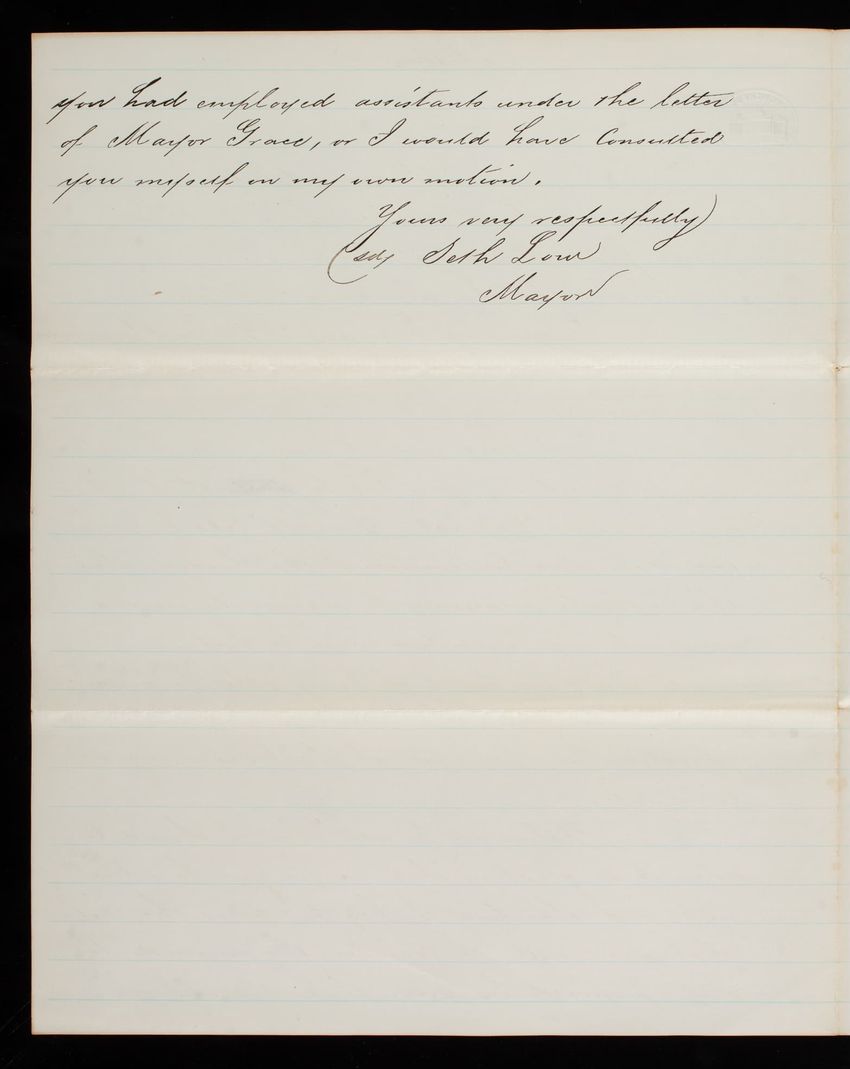 you had employed assistants under the letter
of Mayor Grace, or I would have Consulted
you myself on my own motion.
Yours very respectfully
(sd) Seth Low
Mayor